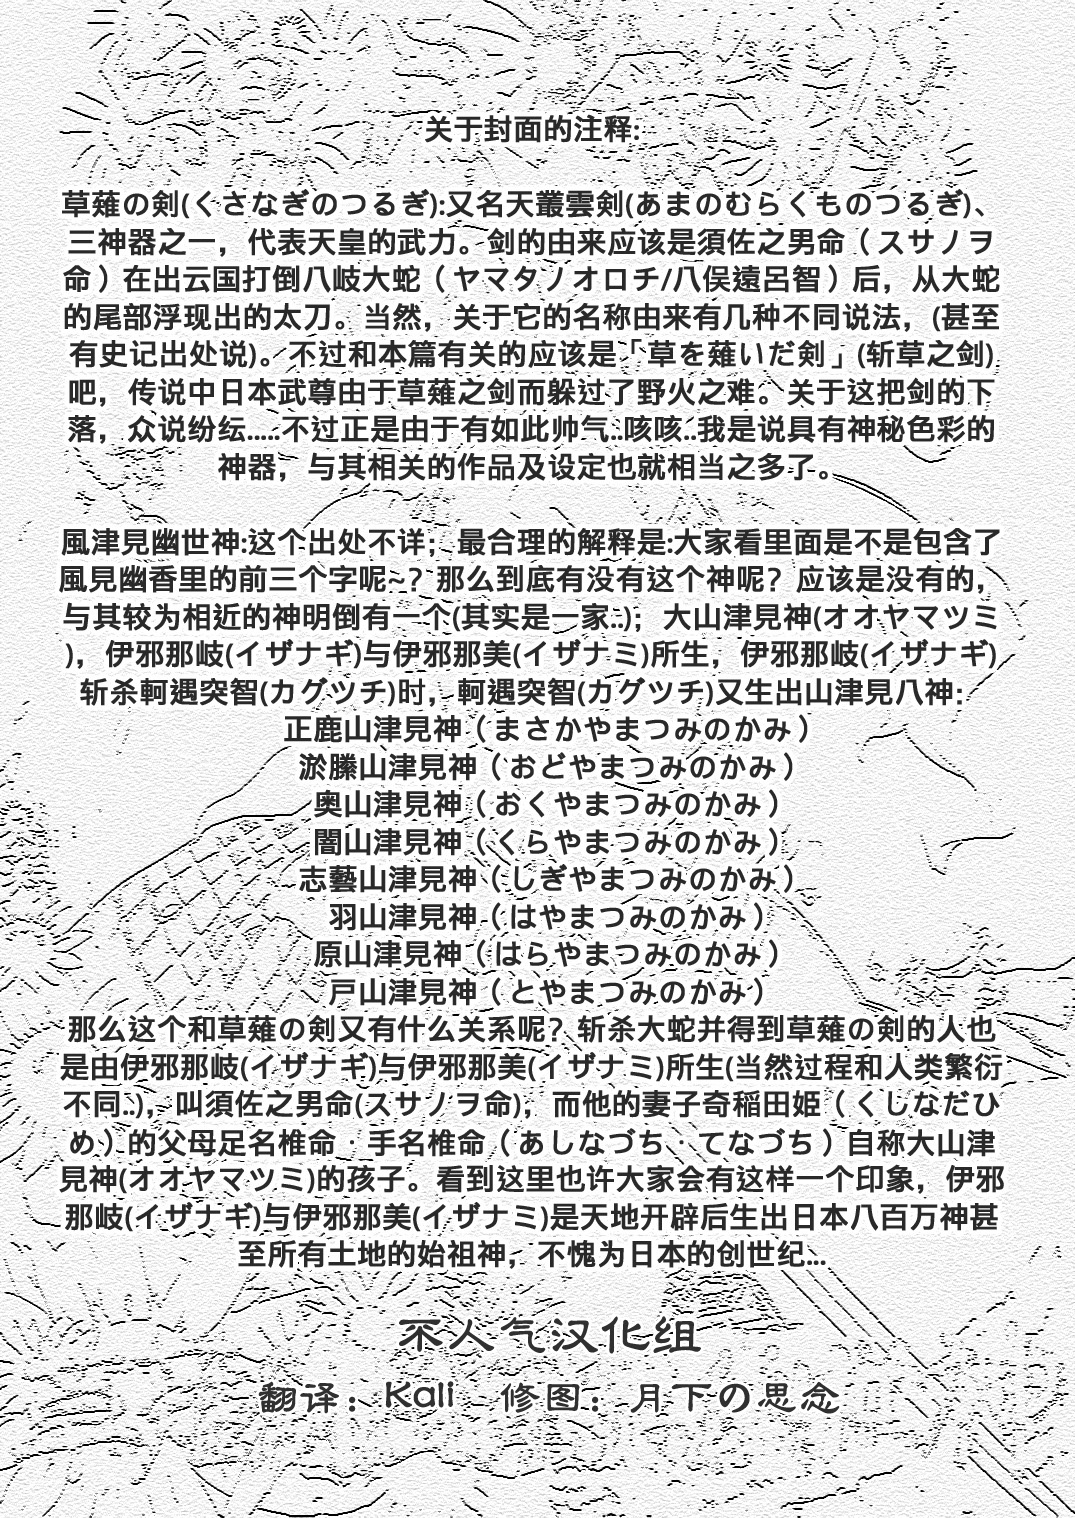 关于封面的注释:
草薙の剣(くさなぎのつるぎ):又名天叢雲剣(あまのむらくものつるぎ)、
三神器之一，代表天皇的武力。剑的由来应该是須佐之男命（スサノヲ
命）在出云国打倒八岐大蛇（ヤマタノオロチ/八俣遠呂智）后，从大蛇
的尾部浮现出的太刀。当然，关于它的名称由来有几种不同说法，(甚至
有史记出处说)。不过和本篇有关的应该是「草を薙いだ剣」(斩草之剑)
吧，传说中日本武尊由于草薙之剑而躲过了野火之难。关于这把剑的下
落，众说纷纭.....不过正是由于有如此帅气..咳咳..我是说具有神秘色彩的
神器，与其相关的作品及设定也就相当之多了。
風津見幽世神:这个出处不详；最合理的解释是:大家看里面是不是包含了
風見幽香里的前三个字呢~？那么到底有没有这个神呢？应该是没有的，
与其较为相近的神明倒有一个(其实是一家..)；大山津見神(オオヤマツミ
)，伊邪那岐(イザナギ)与伊邪那美(イザナミ)所生，伊邪那岐(イザナギ)
斩杀軻遇突智(カグツチ)时，軻遇突智(カグツチ)又生出山津見八神:
正鹿山津見神（まさかやまつみのかみ）
淤縢山津見神（おどやまつみのかみ）
奥山津見神（おくやまつみのかみ）
闇山津見神（くらやまつみのかみ）
志藝山津見神（しぎやまつみのかみ）
羽山津見神（はやまつみのかみ）
原山津見神（はらやまつみのかみ）
戸山津見神（とやまつみのかみ）
那么这个和草薙の剣又有什么关系呢？斩杀大蛇并得到草薙の剣的人也
是由伊邪那岐(イザナギ)与伊邪那美(イザナミ)所生(当然过程和人类繁衍
不同..)，叫須佐之男命(スサノヲ命)；而他的妻子奇稲田姫（くしなだひ
め）的父母足名椎命・手名椎命（あしなづち・てなづち）自称大山津
見神(オオヤマツミ)的孩子。看到这里也许大家会有这样一个印象，伊邪
那岐(イザナギ)与伊邪那美(イザナミ)是天地开辟后生出日本八百万神甚
至所有土地的始祖神，不愧为日本的创世纪...
不人气汉化组
翻译：Kali 修图：月下の思念